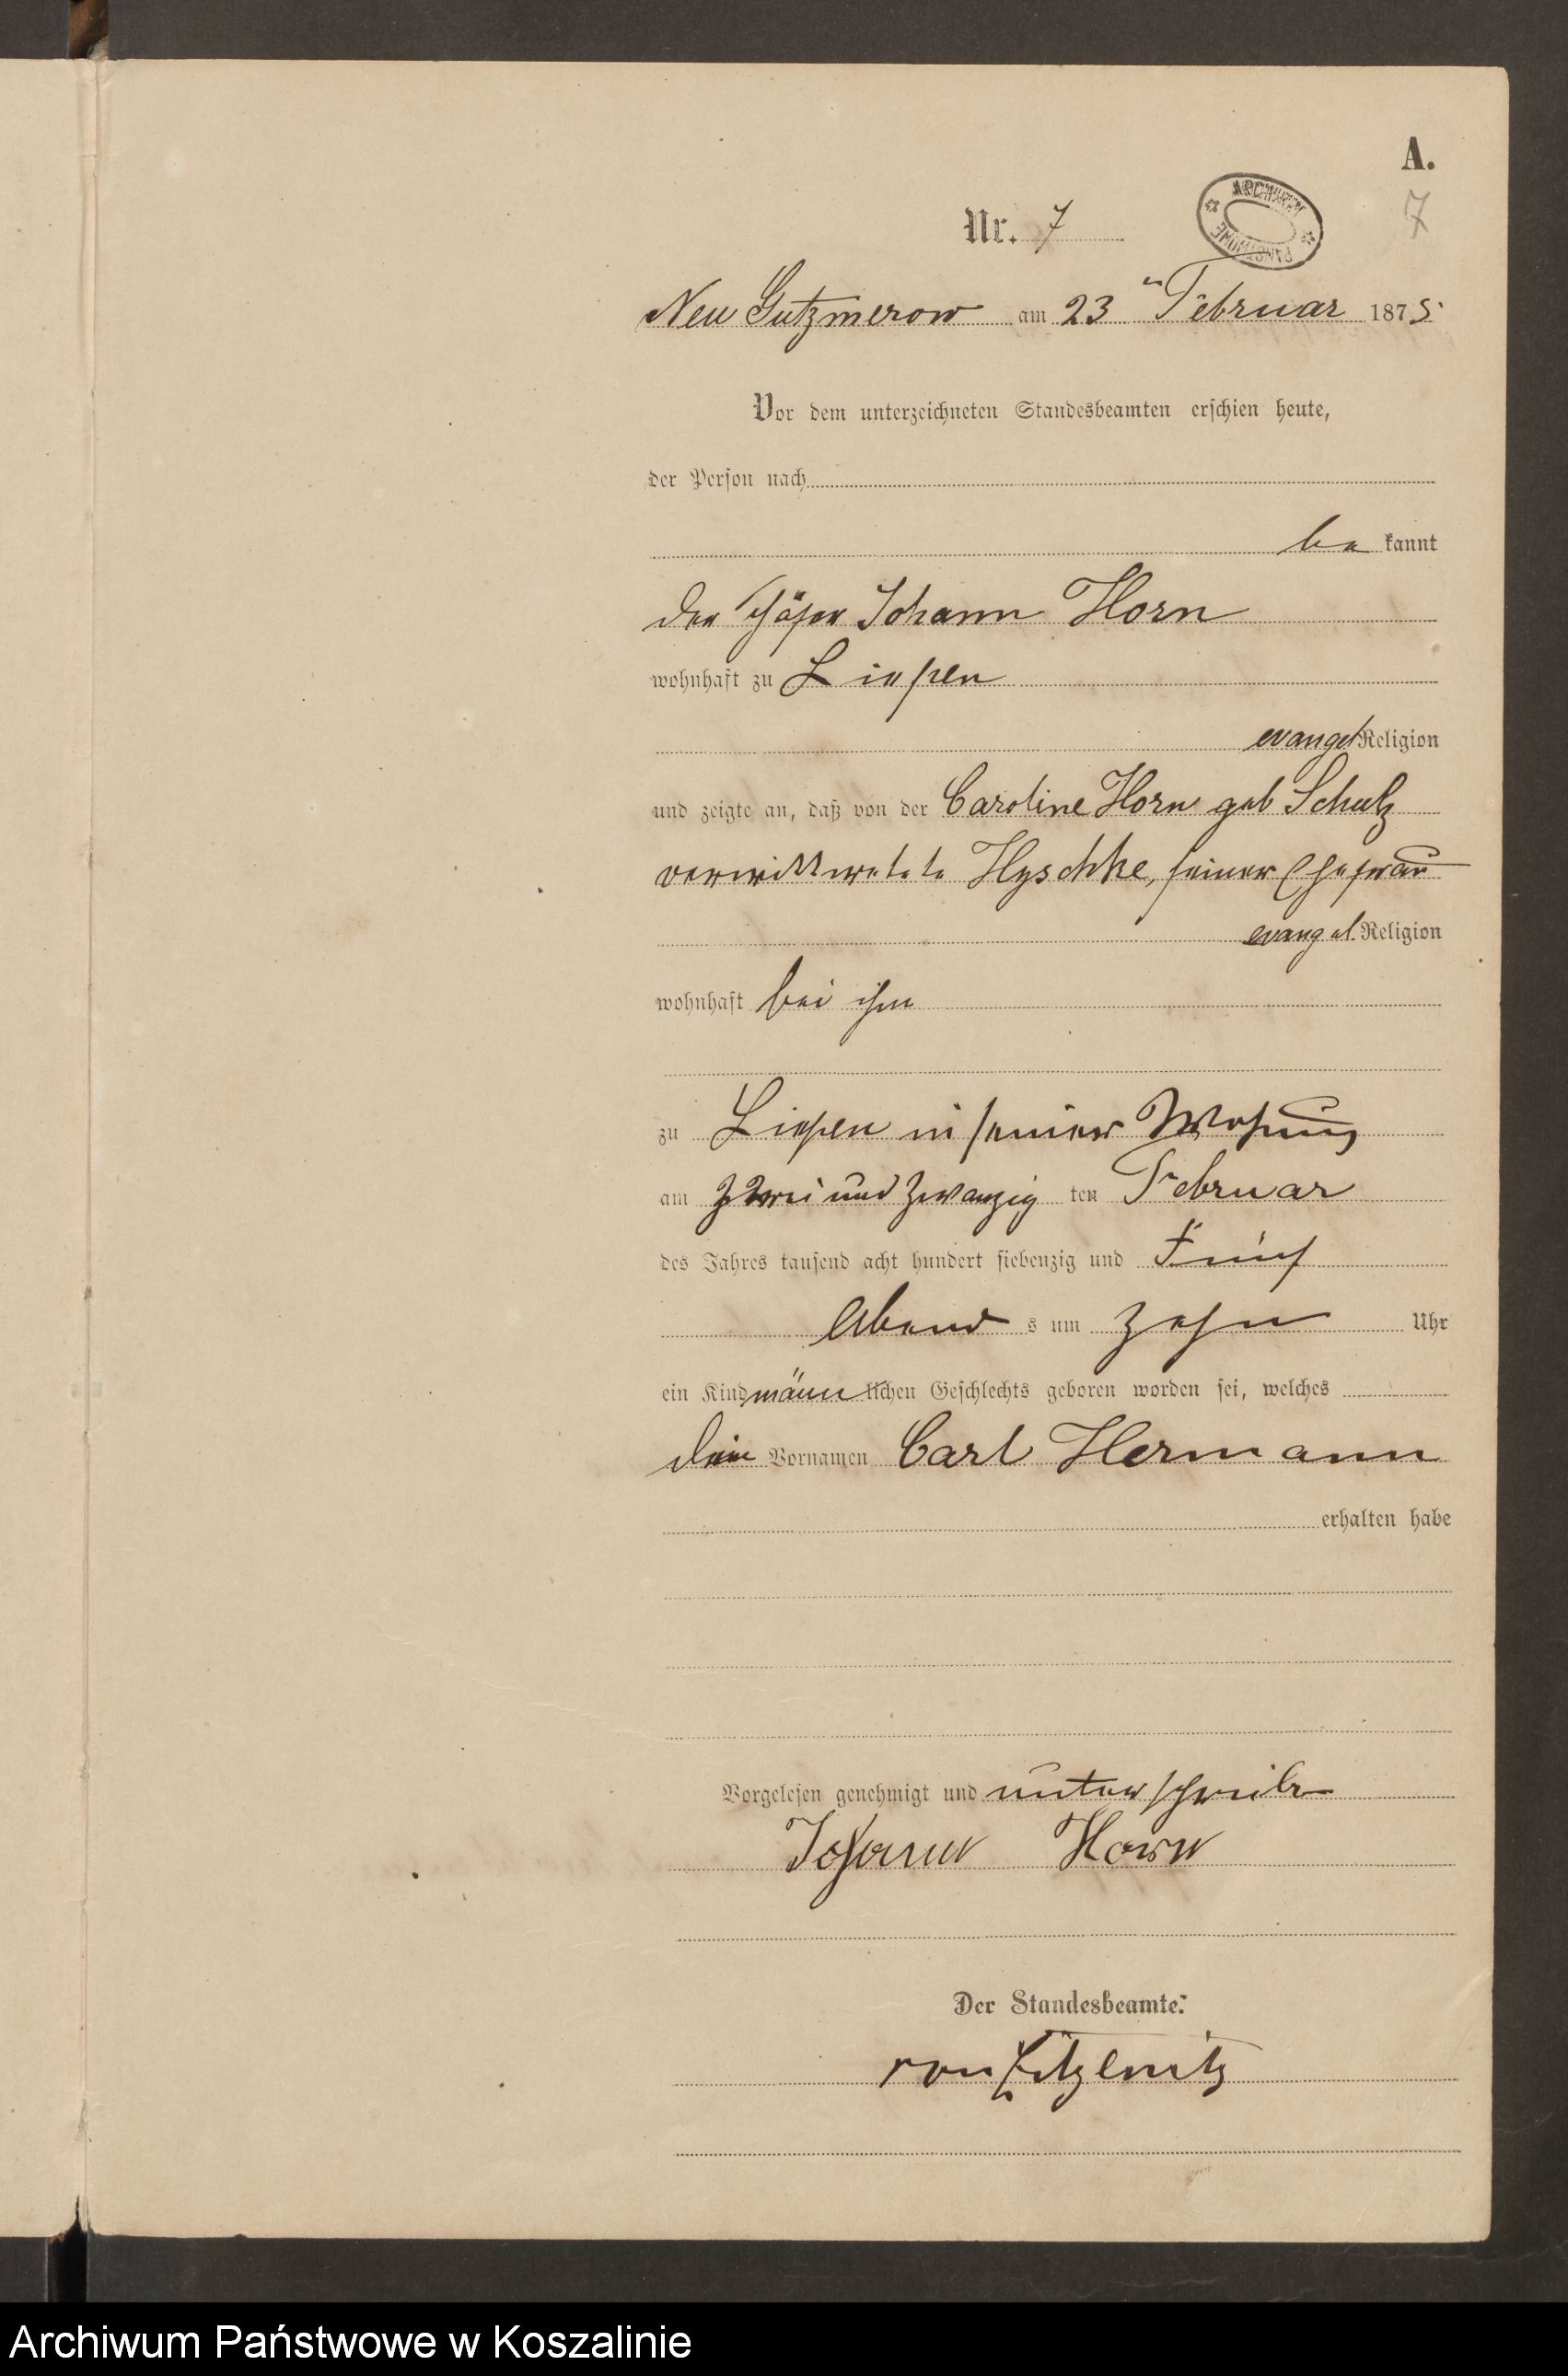 A.
7
Nr. 7
ARCHIWUM PAŃSTWOWE
Neu Gutzmerow am 23ten Februar 1875
Vor dem unterzeichneten Standesbeamten erschien heute,
der Person nach
be kannt
der Schäfer Johann Horn
wohnhaft zu Liepen
evangel Religion
und zeigte an, daß von der Caroline Horn geb Schulz
verwittwetete Hyschke, seiner Ehefrau
evangel. Religion
wohnhaft bei ihm
zu Liepen in seiner Wohnung
am zwei und zwanzig ten Februar
des Jahres tausend acht hundert siebenzig und Fünf
Abend s um zehn Uhr
ein Kind männ lichen Geschlechts geboren worden sei, welches
die Vornamen Carl Hermann
erhalten habe
Vorgelesen genehmigt und unterschrieben
Johann Horn
Der Standesbeamte:
von
Archiwum Państwowe w Koszalinie